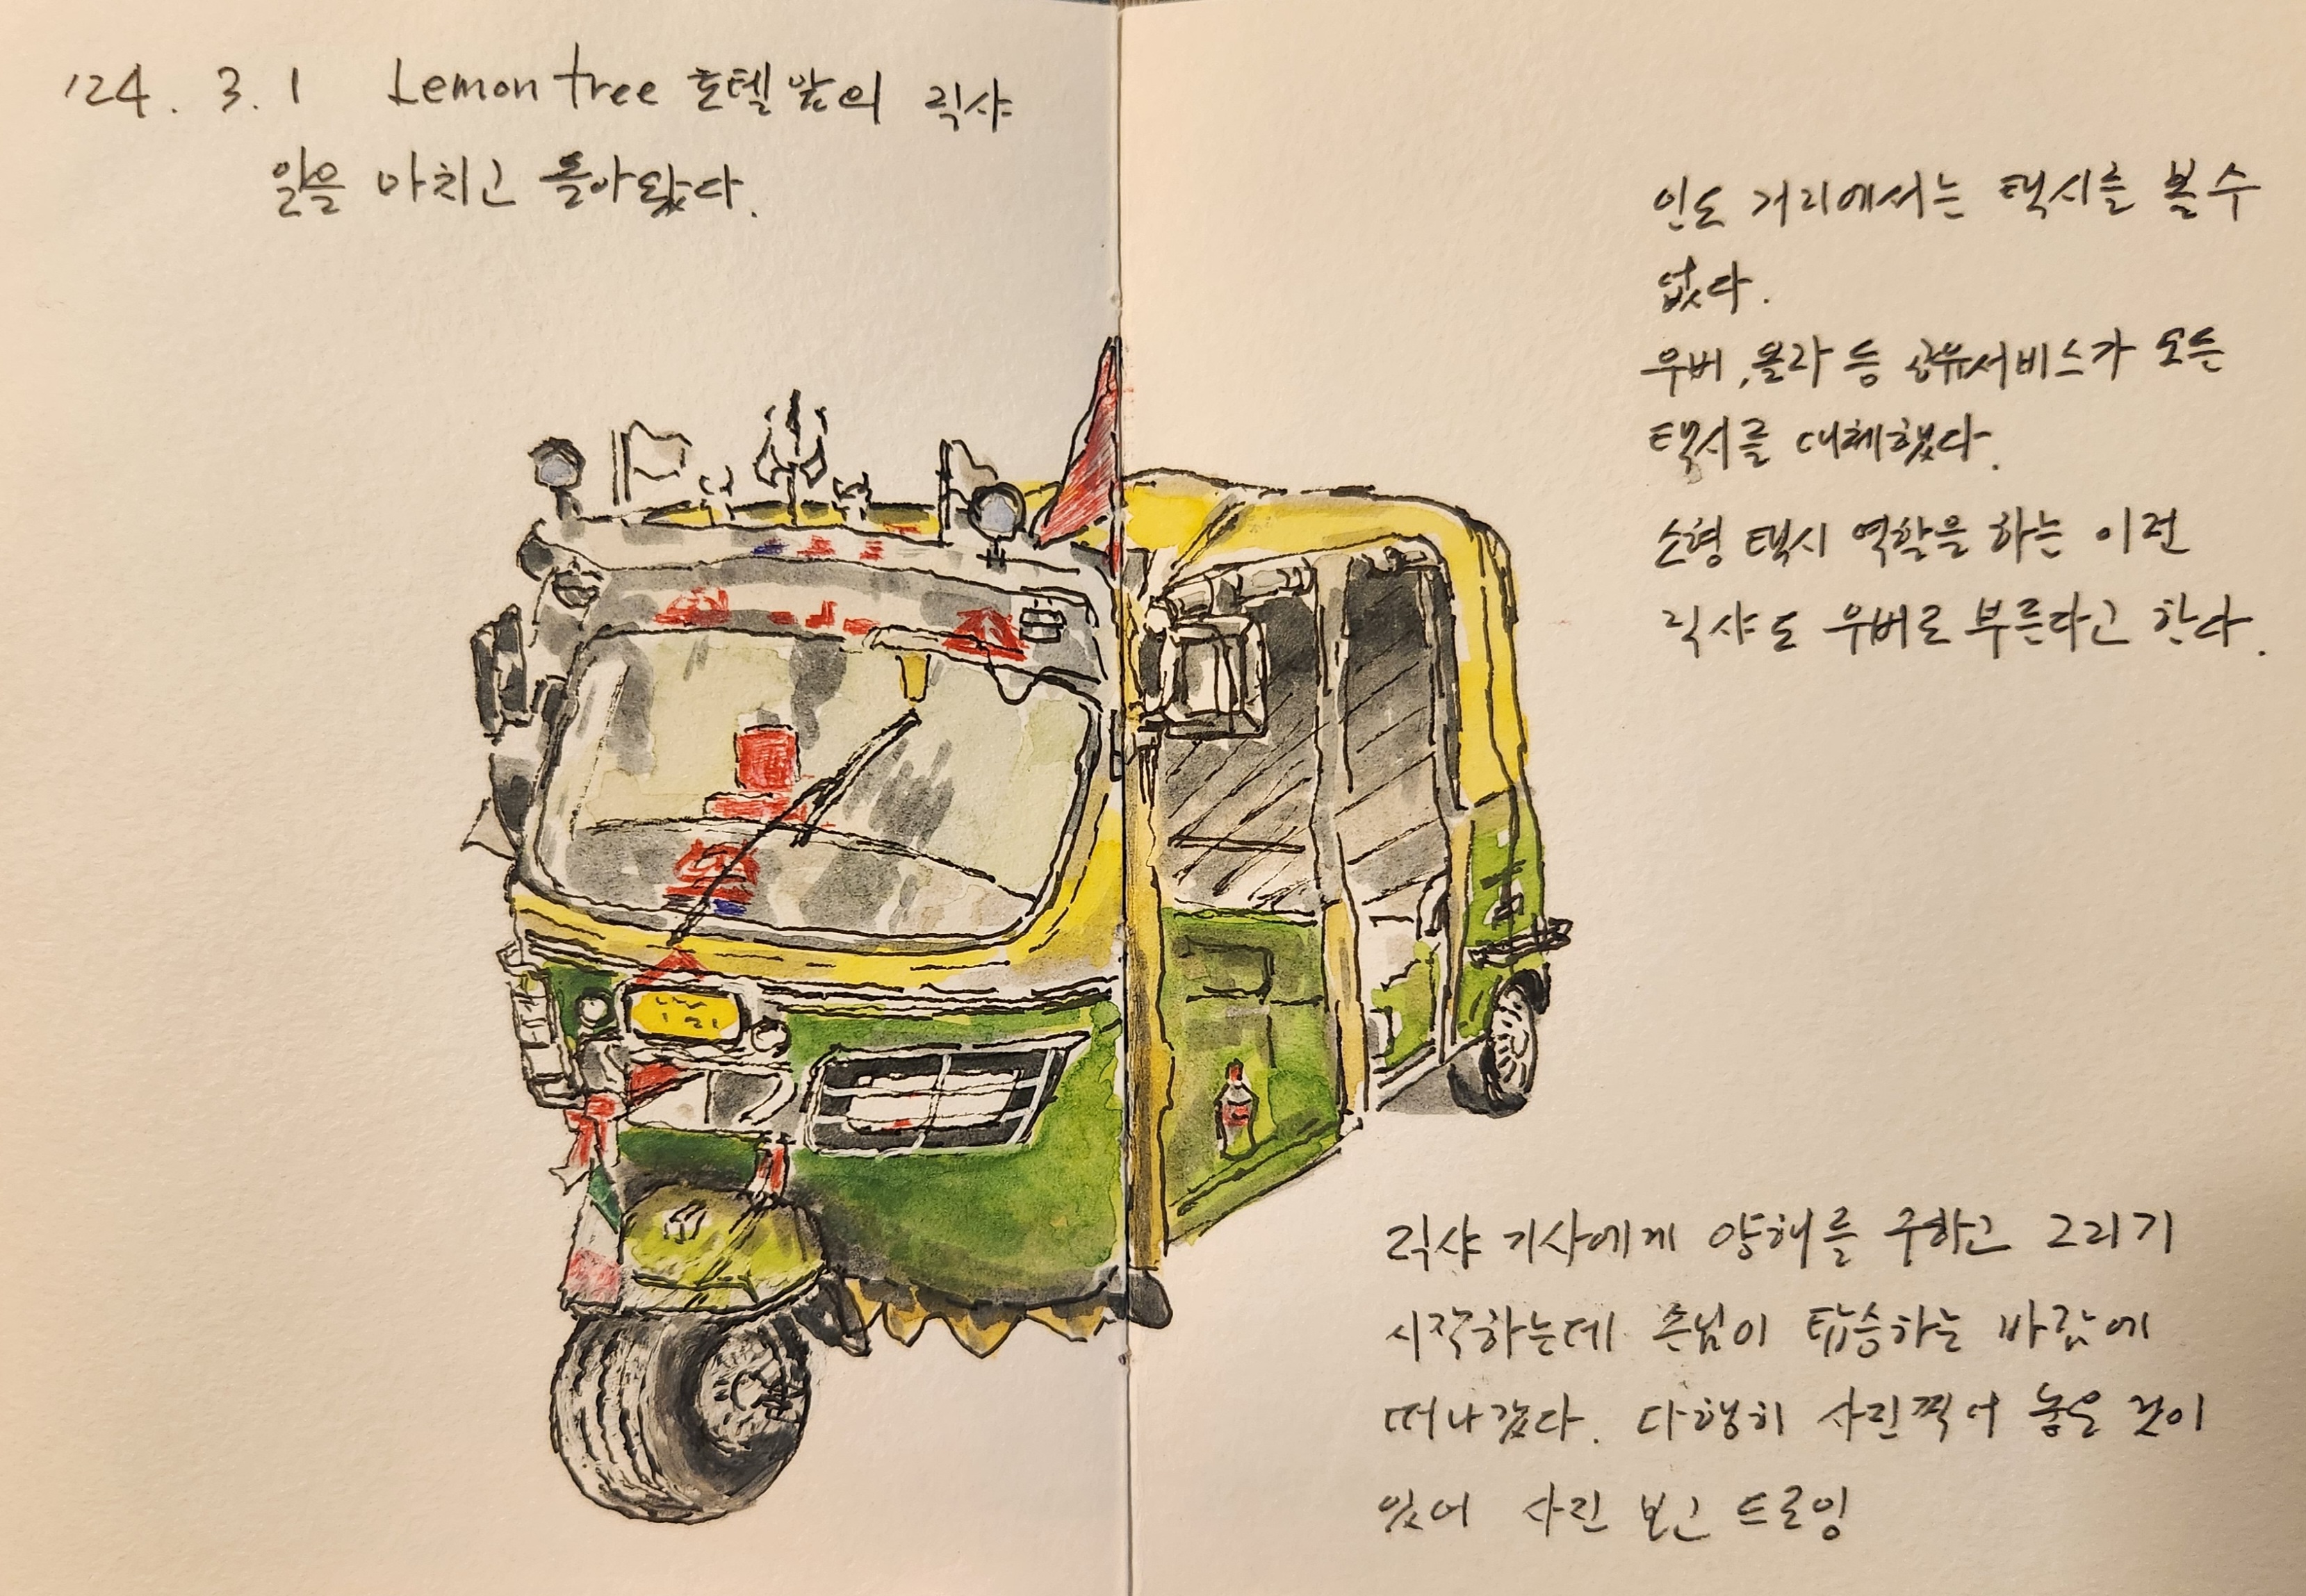 '24. 3. 1 Lemon tree 호텔 앞의 릭샤
일을 마치고 돌아왔다.
인도 거리에서는 택시를 볼 수
없다.
우버, 올라 등 공유서비스가 모든
택시를 대체했다.
소형 택시 역할을 하는 이런
릭샤도 우버로 부른다고 한다.
릭샤 기사에게 양해를 구하고 그리기
시작하는데 손님이 탑승하는 바람에
떠나갔다. 다행히 사진찍어 놓은 것이
있어 사진 보고 드로잉